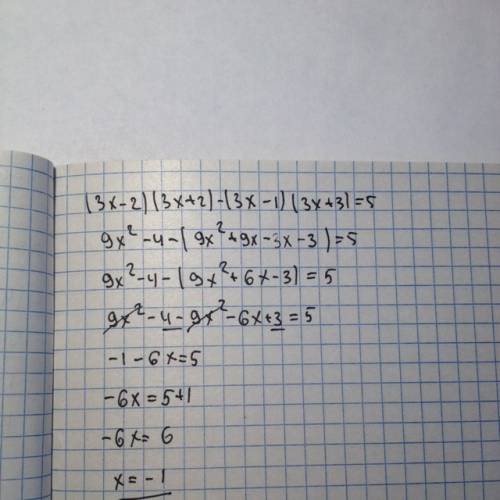 (3x-2)(3x+2)-(3x-1)(3x+3)=5
9x²-4-(9x²+9x-3x-3)=5
9x²-4-(9x²+6x-3)=5
9x²-4-9x²-6x+3=5
-1-6x=5
-6x=5+1
-6x=6
x=-1